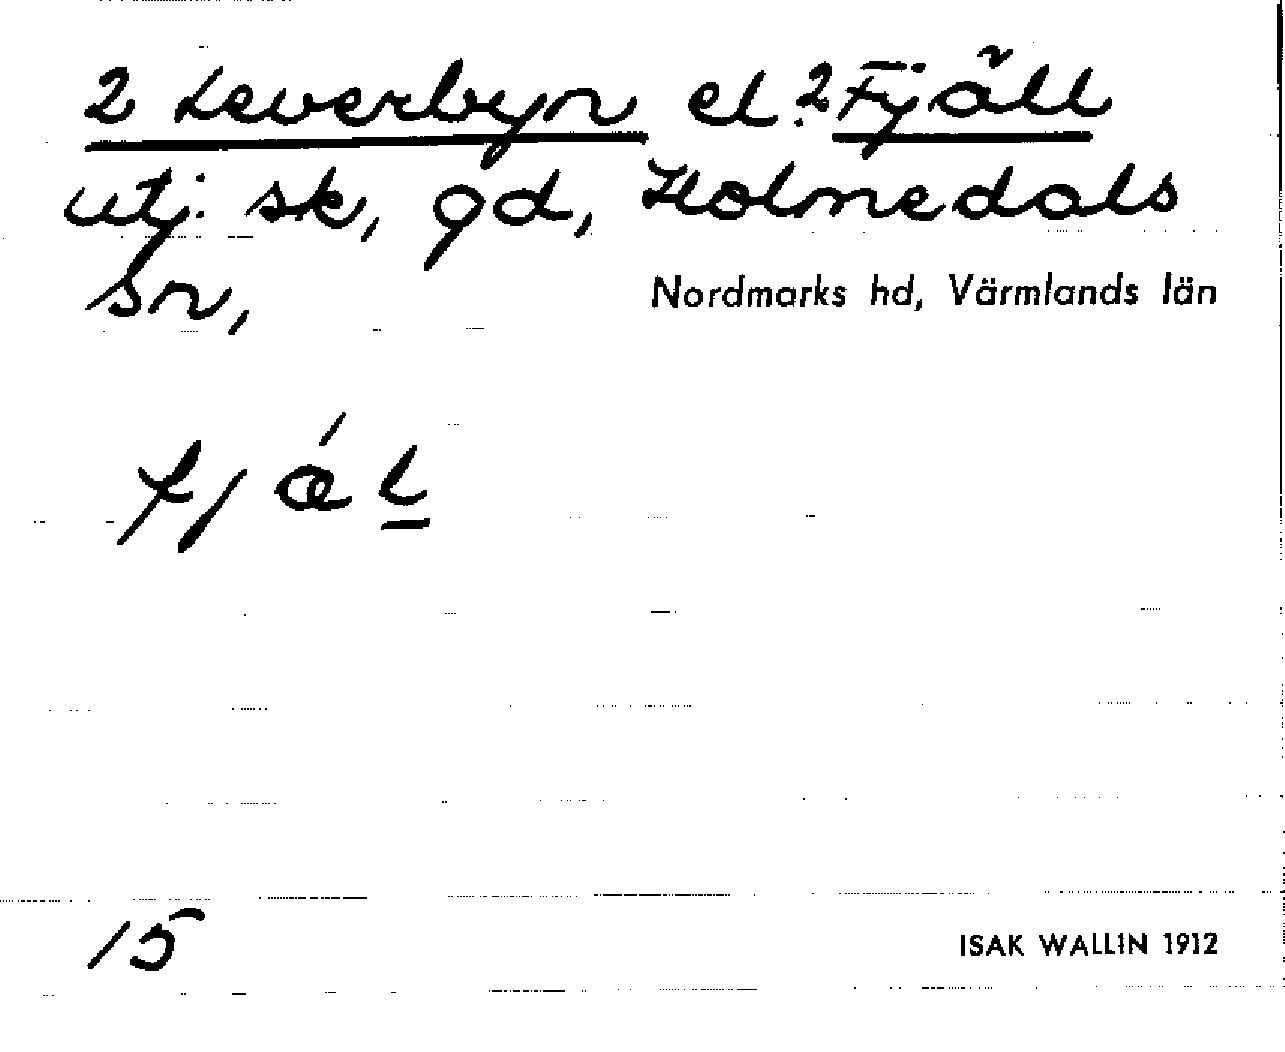 2 Leverbyn el. 2 Fjäll
utj. sk, gd, Holmedals
sn,
Nordmarks hd, Värmlands län
fjæ´l
15
ISAK WALLIN 1912